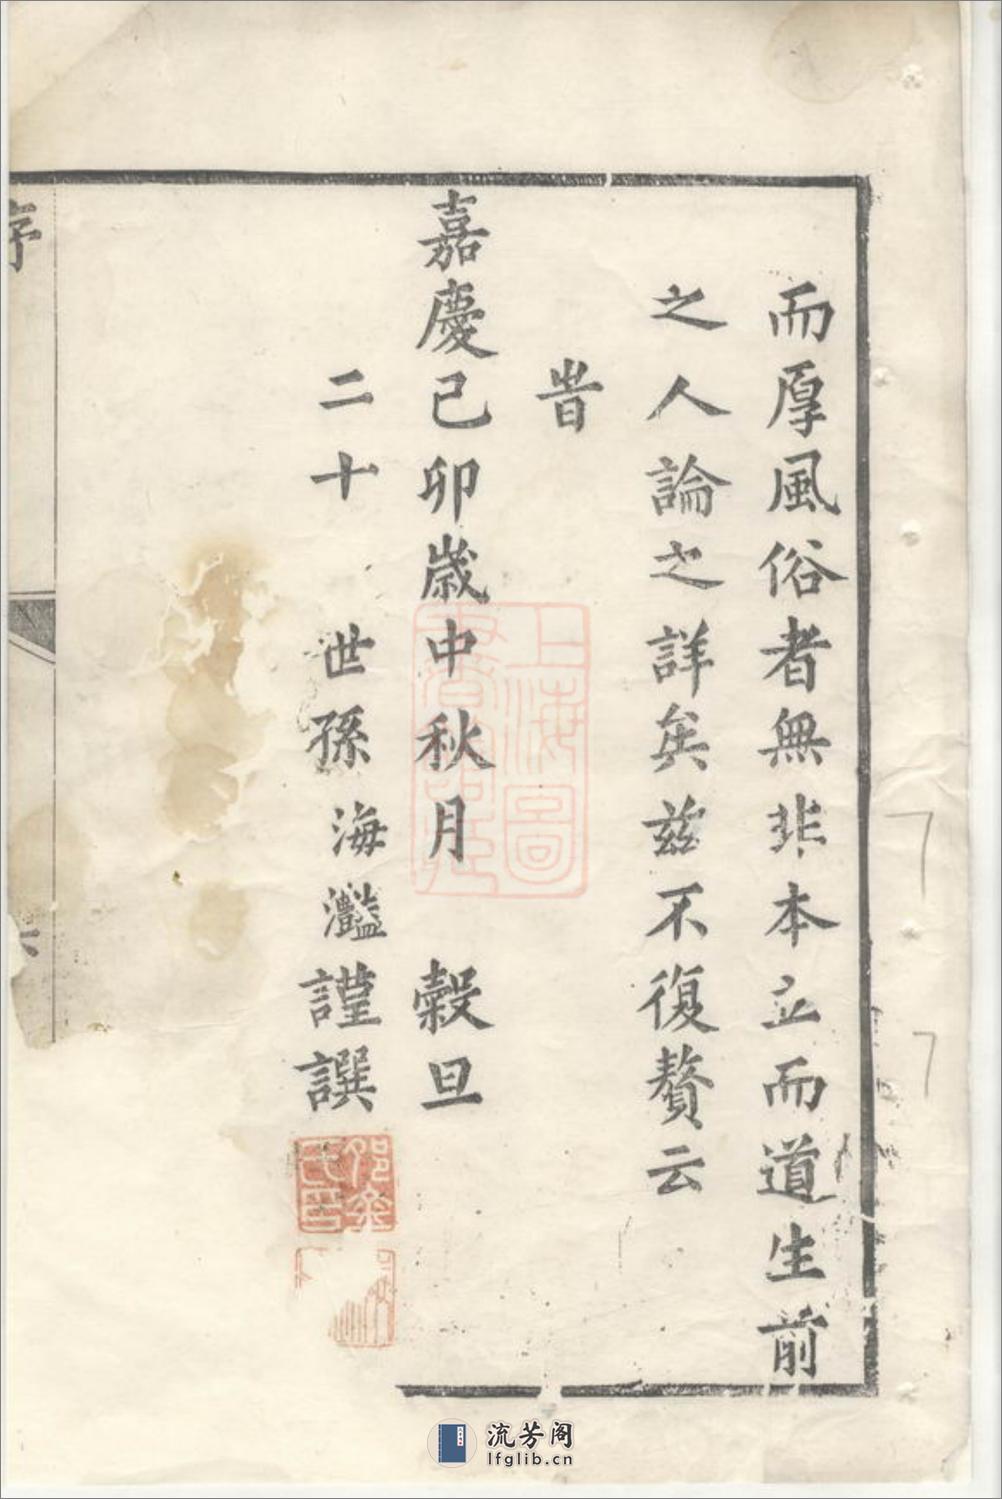 而厚風俗者無非本立而道生前
之人論之詳矣茲不復贅云
旹
嘉慶己卯歲中秋月 穀旦
二十 世孫海灩謹譔
序
上海圖書館藏
流芳阁
lfglib.cn